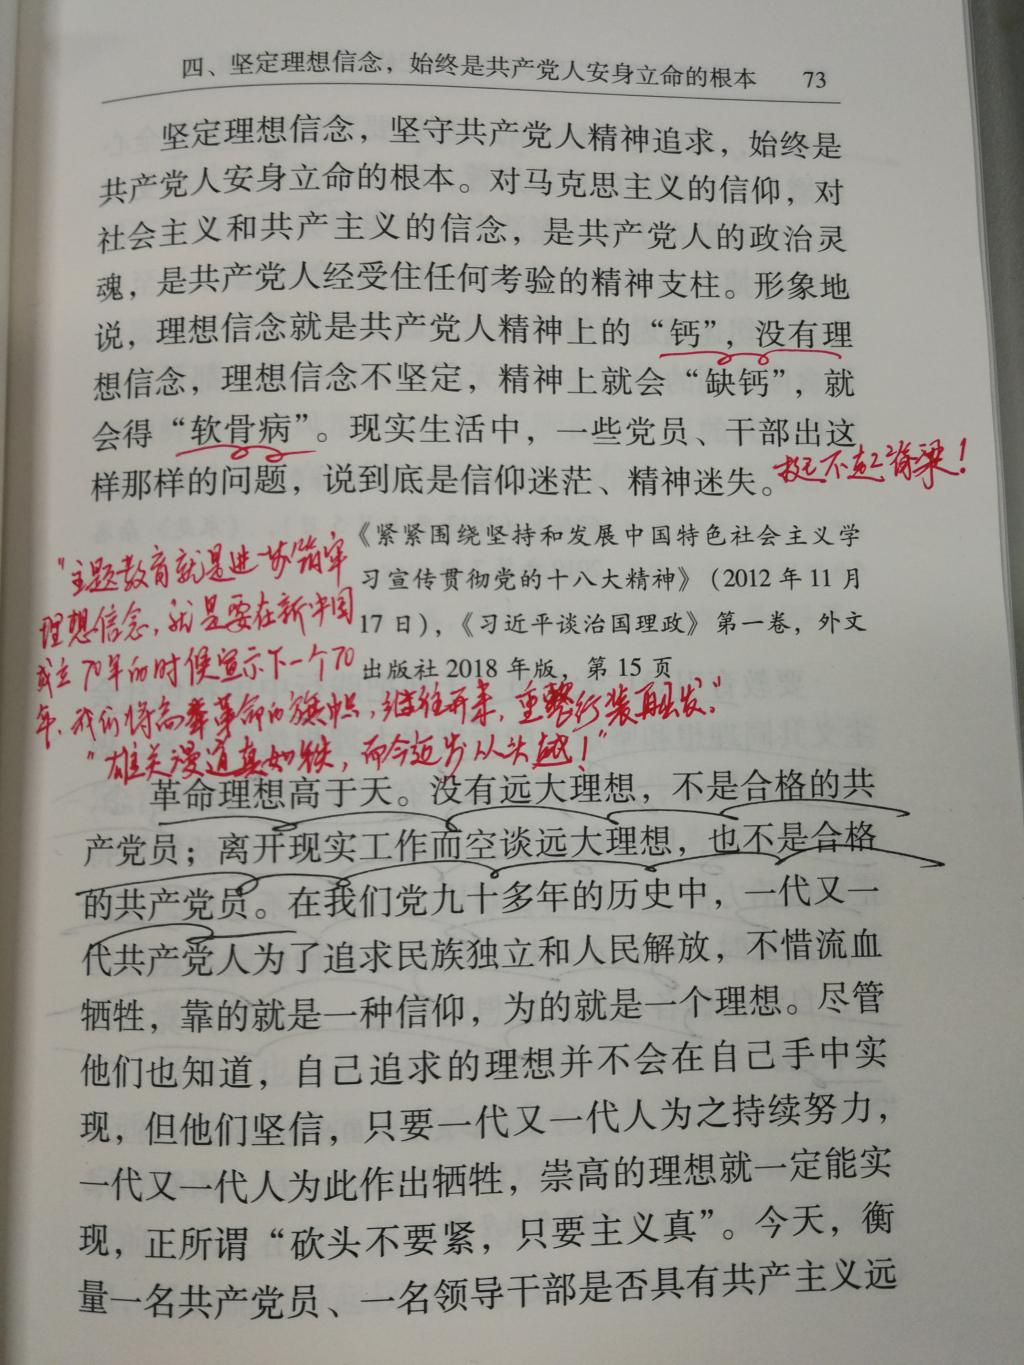 四、坚定理想信念，始终是共产党人安身立命的根本 73
坚定理想信念，坚守共产党人精神追求，始终是
共产党人安身立命的根本。对马克思主义的信仰，对
社会主义和共产主义的信念，是共产党人的政治灵
魂，是共产党人经受住任何考验的精神支柱。形象地
说，理想信念就是共产党人精神上的“钙”，没有理
想信念，理想信念不坚定，精神上就会“缺钙”，就
会得“软骨病”。现实生活中，一些党员、干部出这
样那样的问题，说到底是信仰迷茫、精神迷失。
挺不起脊梁！
《紧紧围绕坚持和发展中国特色社会主义学
习宣传贯彻党的十八大精神》（2012 年 11 月
17 日），《习近平谈治国理政》第一卷，外文
出版社 2018 年版，第 15 页
“主题教育就是进一步筑牢
理想信念，就是要在新中国
成立70年的时候宣示下一个70
年，我们将高举革命的旗帜，继往开来，重整行装再出发。”
“雄关漫道真如铁，而今迈步从头越！”
革命理想高于天。没有远大理想，不是合格的共
产党员；离开现实工作而空谈远大理想，也不是合格
的共产党员。在我们党九十多年的历史中，一代又一
代共产党人为了追求民族独立和人民解放，不惜流血
牺牲，靠的就是一种信仰，为的就是一个理想。尽管
他们也知道，自己追求的理想并不会在自己手中实
现，但他们坚信，只要一代又一代人为之持续努力，
一代又一代人为此作出牺牲，崇高的理想就一定能实
现，正所谓“砍头不要紧，只要主义真”。今天，衡
量一名共产党员、一名领导干部是否具有共产主义远